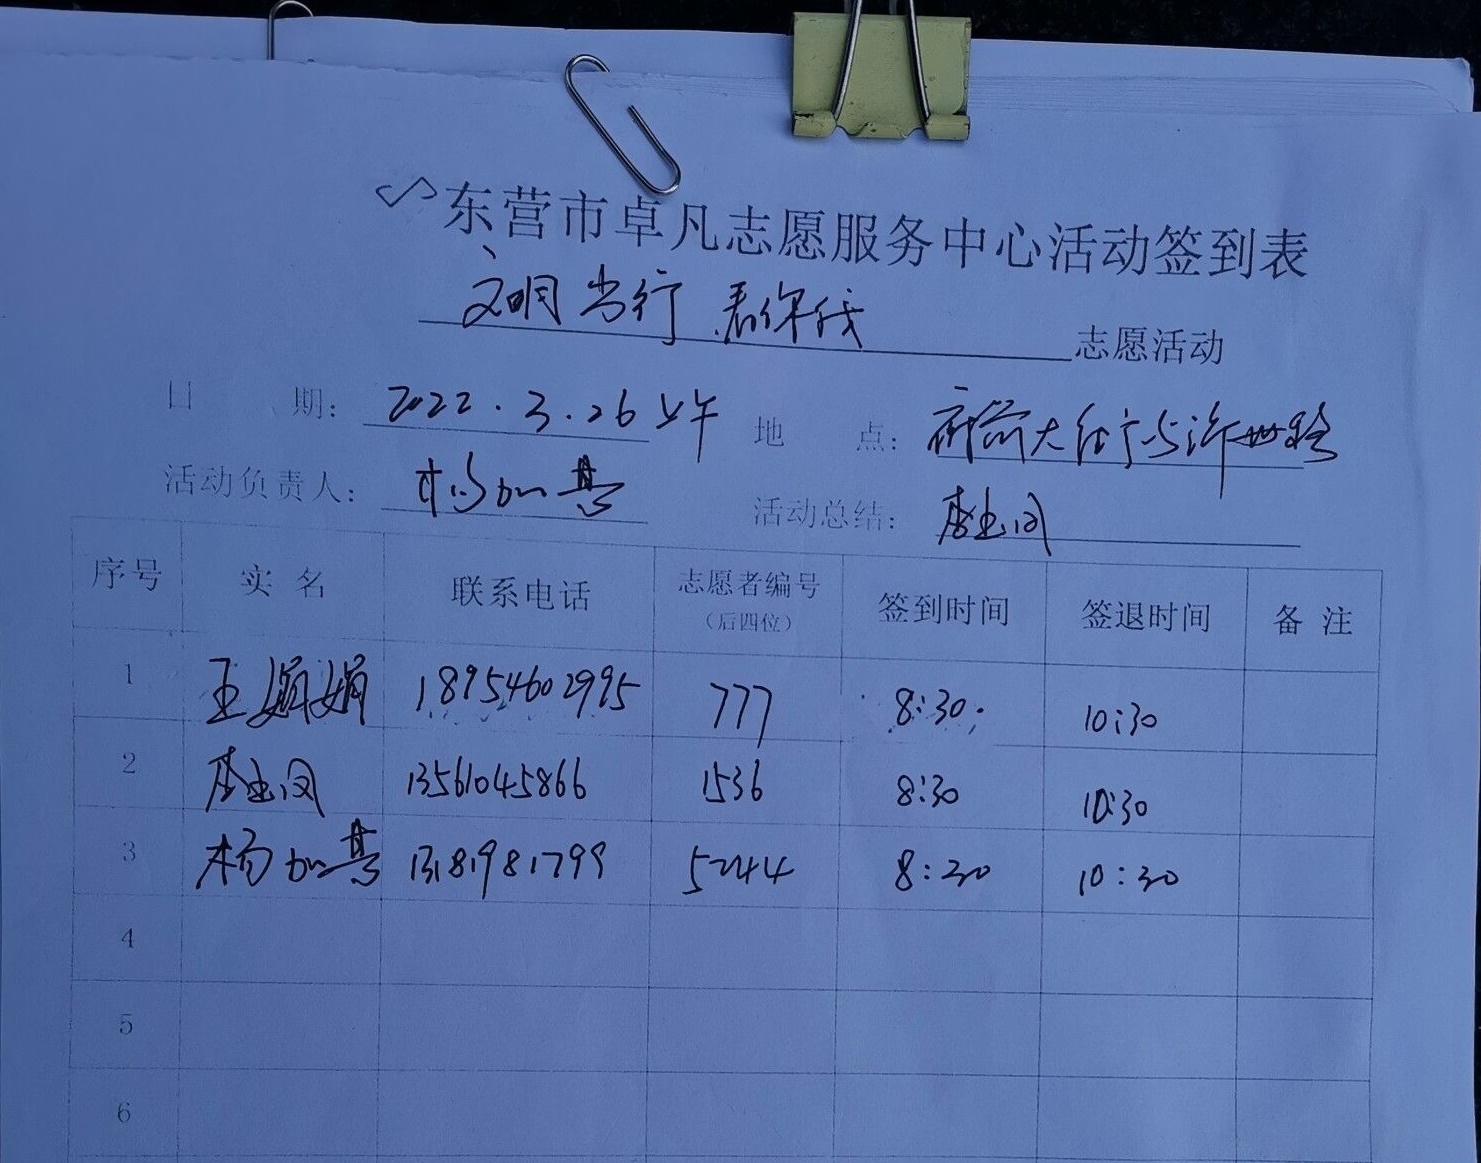 东营市卓凡志愿服务中心活动签到表
文明出行 志愿活动
日 期: 2022.3.26上午 地 点: 府前大街与
活动负责人: 杨加慧 活动总结: 李玉凤
序号 实名 联系电话 志愿者编号 签到时间 签退时间 备注
(后四位)
1 王娟娟 18954602995 777 8:30 10:30
2 李玉凤 13561045866 1536 8:30 10:30
3 杨加慧 13181981799 5244 8:30 10:30
4
5
6